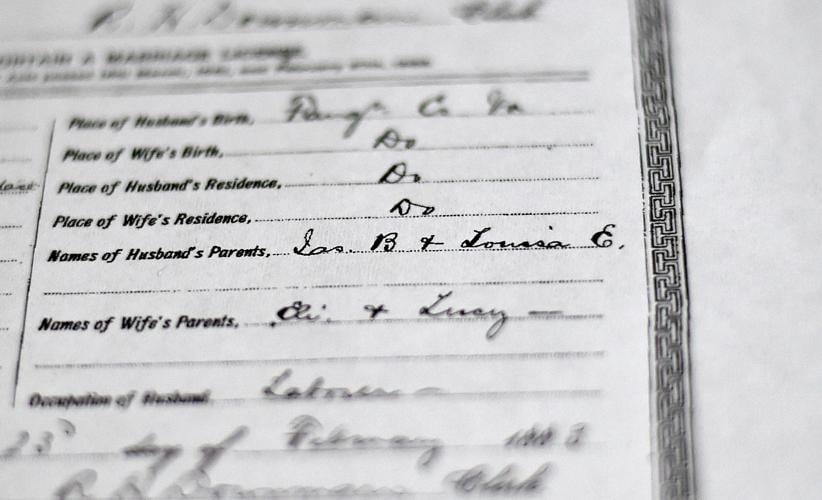 Clerk
OBTAIN A MARRIAGE LICENSE
Place of Husband's Birth, Co Va
Place of Wife's Birth, Do
Place of Husband's Residence, Do
Place of Wife's Residence, Do
Names of Husband's Parents, Jas. B & Louisa E.
Names of Wife's Parents, Eli. & Lucy —
Occupation of Husband, Laborer —
23d day of February 1883
Clerk